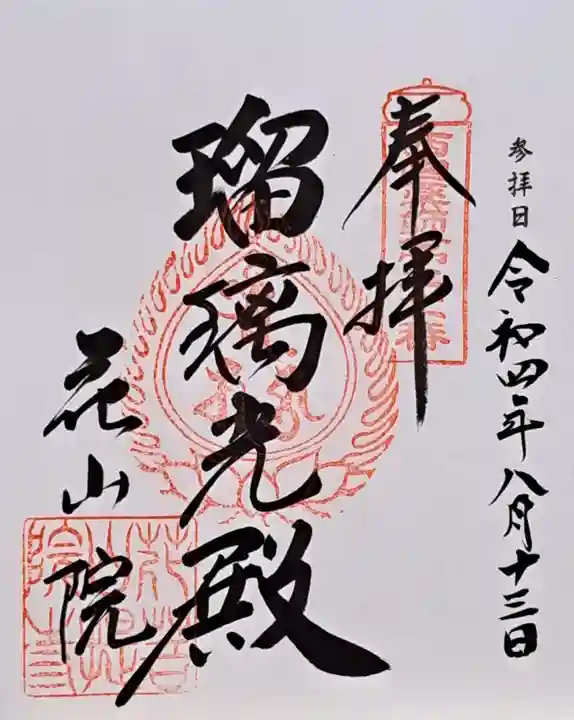 参拝日 令和四年八月十三日
奉拝
瑠璃光殿
花山院